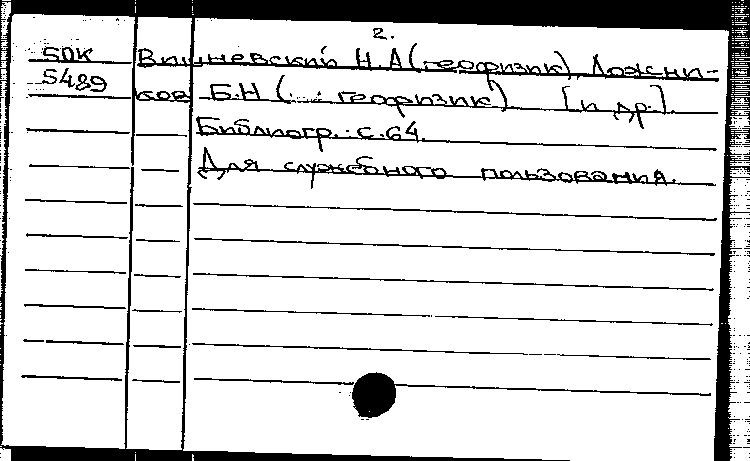 2.
50К Вишневский Н.А (геофизик), Ложни-
5489 ков Б.Н ( . . геофизик) [и др.].
Библиогр.: с.64.
Для служебного пользования.